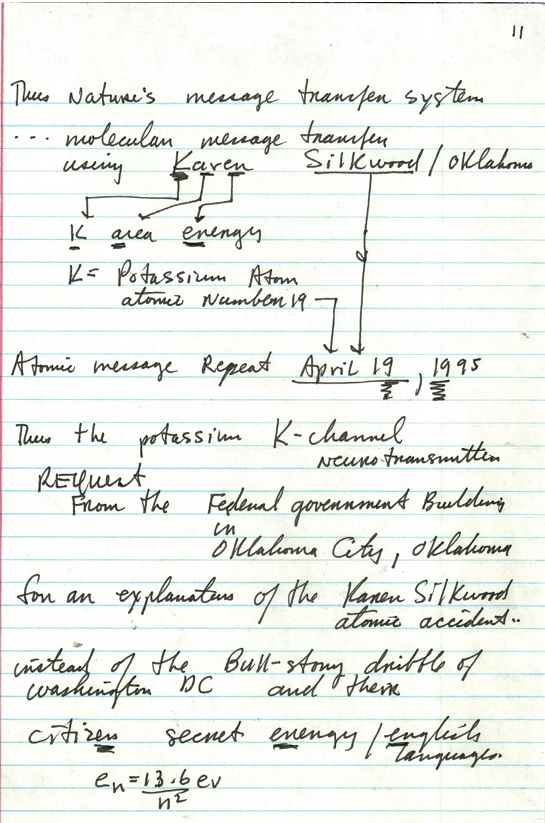 11
Thus Nature's message transfer system
... molecular message transfer
using Karen Silkwood / Oklahoma
K area energy
K = Potassium Atom
atomic Number 19
Atomic message Repeat April 19, 1995
Thus the potassium K-channel
neurotransmitter
REquest
From the Federal government Building
in
Oklahoma City, Oklahoma
for an explanation of the Karen Silkwood
atomic accident..
instead of the Bull-story dribble of
Washington DC and their
citizen secret energy / english
languages.
en = 13.6 ev
n²